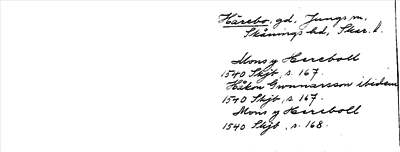 Härebo, gd, Jungs m,
Skånings hd, Skar. l.
Mons y Hereboll
1540 Skjb, s. 167.
Håkon Gwnnarsson ibidem
1540 Skjb, s. 167.
Mons y Hereboll
1540 Skjb, s. 168.